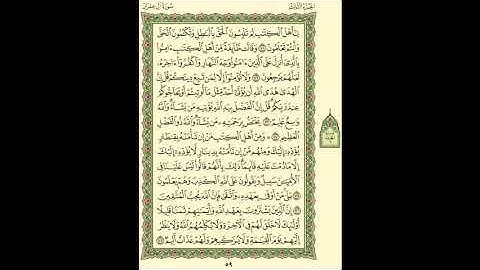 الجزء الثالث
سورة آل عمران
يَٰٓأَهْلَ ٱلْكِتَٰبِ لِمَ تَلْبِسُونَ ٱلْحَقَّ بِٱلْبَٰطِلِ وَتَكْتُمُونَ ٱلْحَقَّ
وَأَنتُمْ تَعْلَمُونَ ٧١ وَقَالَت طَّآئِفَةٌ مِّنْ أَهْلِ ٱلْكِتَٰبِ ءَامِنُوا۟
بِٱلَّذِىٓ أُنزِلَ عَلَى ٱلَّذِينَ ءَامَنُوا۟ وَجْهَ ٱلنَّهَارِ وَٱكْفُرُوٓا۟ ءَاخِرَهُۥ
لَعَلَّهُمْ يَرْجِعُونَ ٧٢ وَلَا تُؤْمِنُوٓا۟ إِلَّا لِمَن تَبِعَ دِينَكُمْ قُلْ إِنَّ
ٱلْهُدَىٰ هُدَى ٱللَّهِ أَن يُؤْتَىٰٓ أَحَدٌ مِّثْلَ مَآ أُوتِيتُمْ أَوْ يُحَآجُّوكُمْ
عِندَ رَبِّكُمْ قُلْ إِنَّ ٱلْفَضْلَ بِيَدِ ٱللَّهِ يُؤْتِيهِ مَن يَشَآءُ وَٱللَّهُ
وَٰسِعٌ عَلِيمٌ ٧٣ يَخْتَصُّ بِرَحْمَتِهِۦ مَن يَشَآءُ وَٱللَّهُ ذُو ٱلْفَضْلِ
ٱلْعَظِيمِ ٧٤ وَمِنْ أَهْلِ ٱلْكِتَٰبِ مَنْ إِن تَأْمَنْهُ بِقِنطَارٍ
يُؤَدِّهِۦٓ إِلَيْكَ وَمِنْهُم مَّنْ إِن تَأْمَنْهُ بِدِينَارٍ لَّا يُؤَدِّهِۦٓ إِلَيْكَ
إِلَّا مَا دُمْتَ عَلَيْهِ قَآئِمًا ذَٰلِكَ بِأَنَّهُمْ قَالُوا۟ لَيْسَ عَلَيْنَا فِى
ٱلْأُمِّيِّۦنَ سَبِيلٌ وَيَقُولُونَ عَلَى ٱللَّهِ ٱلْكَذِبَ وَهُمْ يَعْلَمُونَ
٧٥ بَلَىٰ مَنْ أَوْفَىٰ بِعَهْدِهِۦ وَٱتَّقَىٰ فَإِنَّ ٱللَّهَ يُحِبُّ ٱلْمُتَّقِينَ
٧٦ إِنَّ ٱلَّذِينَ يَشْتَرُونَ بِعَهْدِ ٱللَّهِ وَأَيْمَٰنِهِمْ ثَمَنًا قَلِيلًا
أُو۟لَٰٓئِكَ لَا خَلَٰقَ لَهُمْ فِى ٱلْءَاخِرَةِ وَلَا يُكَلِّمُهُمُ ٱللَّهُ وَلَا يَنظُرُ
إِلَيْهِمْ يَوْمَ ٱلْقِيَٰمَةِ وَلَا يُزَكِّيهِمْ وَلَهُمْ عَذَابٌ أَلِيمٌ ٧٧
٥٩